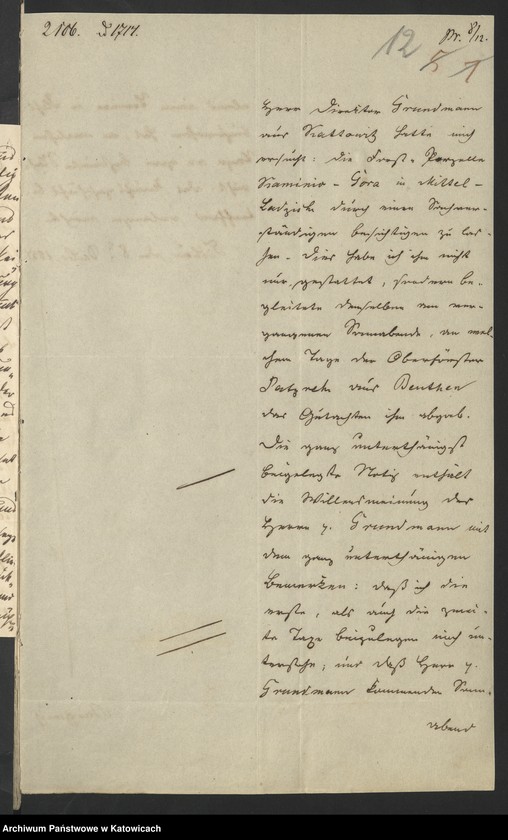 2106. d 1717.
pr. 8/12.
12
Herr Direktor Grundmann
aus Kattowitz hatte mich
ersucht: die Forst-Parzelle
Kaminio-Gora in Mittel-
Ladzisk durch einen Sachver-
ständigen besichtigen zu las-
sen. Dies habe ich ihm nicht
nur gestattet, sondern be-
gleitete denselben am ver-
gangenen Sonnabende, an wel-
chem Tage der Oberförster
aus Beuthen
das Gutachten ihm abgab.
Die ganz unterthänigst
beigelegte Notiz enthält
die Willensmeinung des
Herrn p. Grundmann mit
dem ganz unterthänigen
Bemerken: daß ich die
erste, als auch die zwei-
te Taxe beizulegen mich un-
terstehe; und daß Herr p.
Grundmann kommenden Sonn-
abend
Archiwum Państwowe w Katowicach